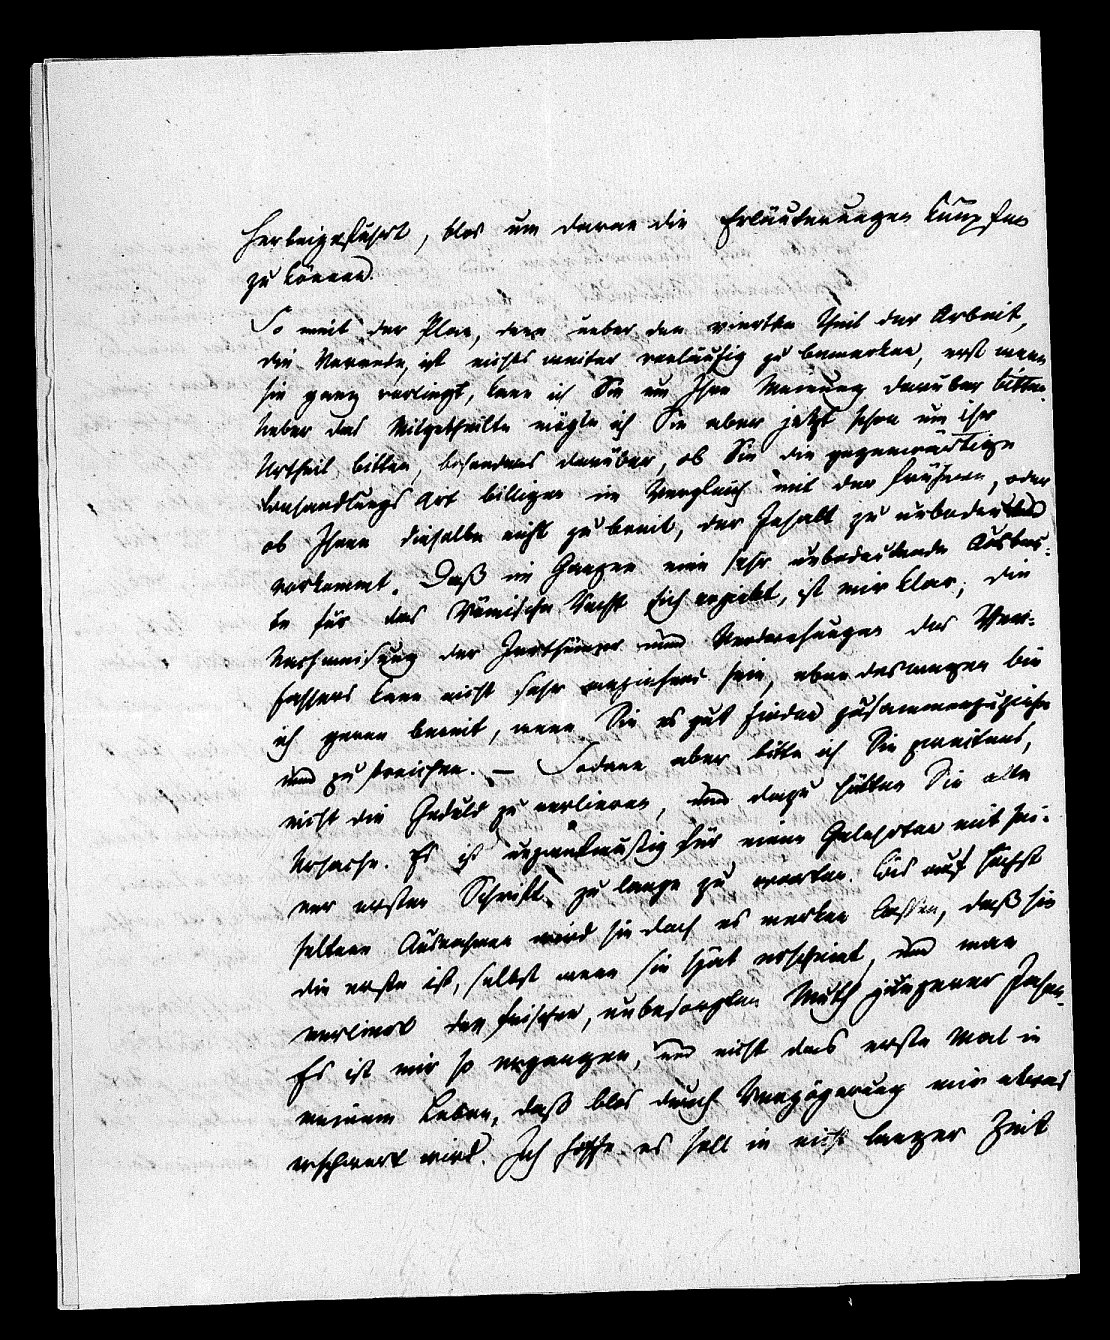 herbeigeführt, blos um daran die Erläuterungen knüpfen
zu können.
So weit der Plan, denn ueber den vierten Theil der Arbeit,
die Vorrede, ist nichts weiter vorläufig zu bemerken, erst wenn
sie ganz vorliegt, kann ich Sie um Ihre Meinung darüber bitten.
Ueber das Mitgetheilte mögte ich Sie aber jetzt schon um ihr
Urtheil bitten, besonders darüber, ob Sie die gegenwärtige
Behandlungs Art billigen im Vergleich mit der früheren, oder
ob Ihnen dieselbe nicht zu breit, der Inhalt zu unbedeutend
vorkommt. Daß im Ganzen eine sehr unbedeutende Ausbeu-
te für das Römische Recht sich ergiebt, ist mir klar, die
Nachweisung der Irrthümer und Verdrehungen des Ver-
fassers kann nicht sehr anziehend sein, eben deswegen bin
ich gerne bereit, wenn Sie es gut finden zusammenzuziehen
und zu streichen. — Sodann aber bitte ich Sie zweitens,
nicht die Geduld zu verlieren, und dazu hätten Sie alle
Ursache. Es ist unzweckmäßig für einen Gelehrten mit sei-
ner ersten Schrift zu lange zu warten. Bis auf höchst
seltene Ausnahmen wird sie doch es merken lassen, daß sie
die erste ist, selbst wenn sie spät erscheint, und man
verliert den frischen, unbesorgten Muth jüngerer Jahre.
Es ist mir so ergangen, und nicht das erste Mal in
meinem Leben, daß blos durch Verzögerung mir etwas
erschwert wird. Ich hoffe es soll in nicht langer Zeit